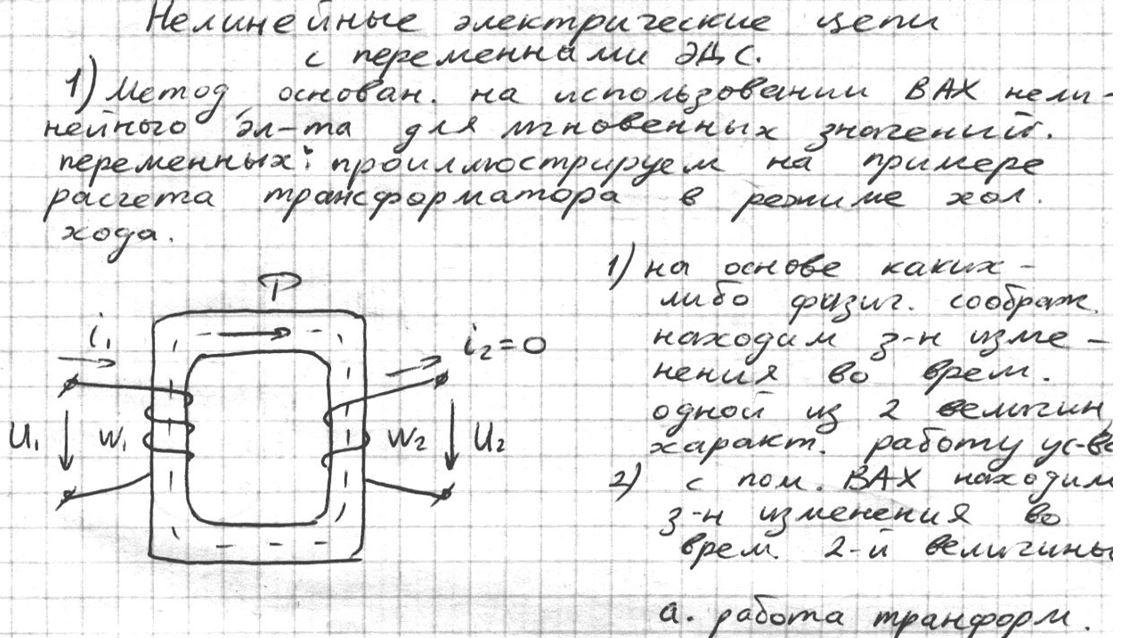 Нелинейные электрические цепи
с переменнами ЭДС.
1) Метод основан. на использовании ВАХ нели-
нейного эл-та для мгновенных значений.
переменных: проиллюстрируем на примере
расчета трансформатора в режиме хол.
хода.
1) на основе каких-
либо физич. соображ.
находим з-н изме-
нения во врем.
одной из 2 величин,
характ. работу ус-ва
2) с пом. ВАХ находим
з-н изменения во
врем. 2-й величины
а. работа транформ.
i1
i2=0
U1
W1
W2
U2